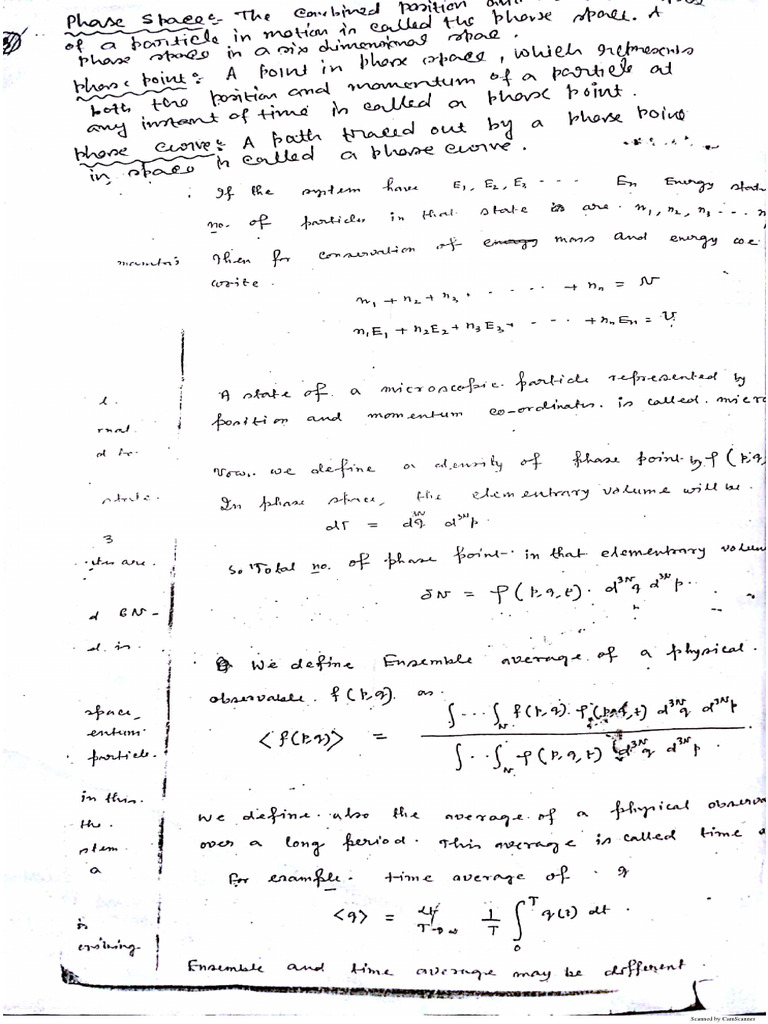 Phase Space:- The combined position and space
of a particle in motion is called the phase space. A
phase space in a six dimensional spac.
phase point: A point in phase space, which represents
both the position and momentum of a particle at
any instant of time is called a phase point.
phase curve: A path traced out by a phase point
in space is called a phase curve.
If the system have E₁, E₂, E₃ - - - En Energy stat
no. of particles in that state is are n₁, n₂, n₃ - - - n
Then for conservation of energy mass and energy we
write.
n₁ + n₂ + n₃ . - - - - . . + nₙ = N
n₁E₁ + n₂E₂ + n₃E₃ + - - - . . + nₙEₙ = U
A state of a microscopic particle represented by
position and momentum co-ordinates. is called. micro
Now, we define a density of phase point by ρ(p,q,
In phase space, the elementrary volume will be.
dΓ = d³ᴺq d³ᴺp.
So Total no. of phase point in that elementrary volum
δN = ρ(p,q,t). d³ᴺq d³ᴺp.
We define Ensemble average of a physical.
observable f(p,q) as.
<f(p,q)> = ∫...∫_N f(p,q). ρ(p,q,t) d³ᴺq d³ᴺp / ∫...∫_N ρ(p,q,t) d³ᴺq d³ᴺp.
We define also the average of a physical observa
over a long period. This average is called time a
For example. time average of q
<q> = Lt T→∞ 1/T ∫₀ᵀ q(t) dt.
Ensemble and time average may be different.
l.
rnal
d to.
state.
3
d 6N-
d. is
space,
entum
particle.
in this.
the.
stem
a
is
Scanned by CamScanner